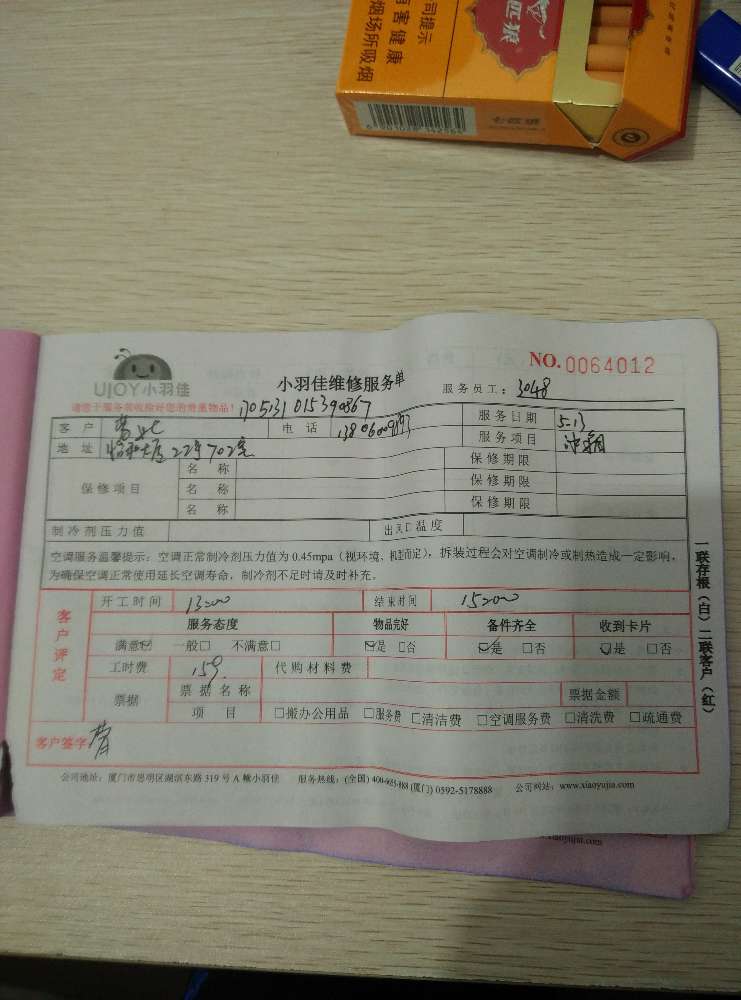 司提示
有害健康
烟场所吸烟
匹狼
七匹狼
UJOY小羽佳
小羽佳维修服务单
NO. 0064012
服务员工: 3048
请您于服务前收捡好您的贵重物品!
客户
电话
服务日期 5-13
地址 22号702室
服务项目
保修项目
名称 保修期限
名称 保修期限
名称 保修期限
制冷剂压力值 出风口温度
空调服务温馨提示:空调正常制冷剂压力值为0.45mpa(视环境、机型而定),拆装过程会对空调制冷或制热造成一定影响,
为确保空调正常使用延长空调寿命,制冷剂不足时请及时补充。
客户评定
开工时间 13:00 结束时间 15:00
服务态度 物品完好 备件齐全 收到卡片
满意☑ 一般□ 不满意□ ☑是 □否 ☑是 □否 ☑是 □否
工时费 159 代购材料费
票据 票据名称 票据金额
项目 □搬办公用品 □服务费 □清洁费 □空调服务费 □清洗费 □疏通费
客户签字
一联存根(白) 二联客户(红)
公司地址:厦门市思明区湖滨东路319号A幢小羽佳 服务热线:(全国) (厦门) 0592-5178888 公司网站:www.xiaoyujia.com